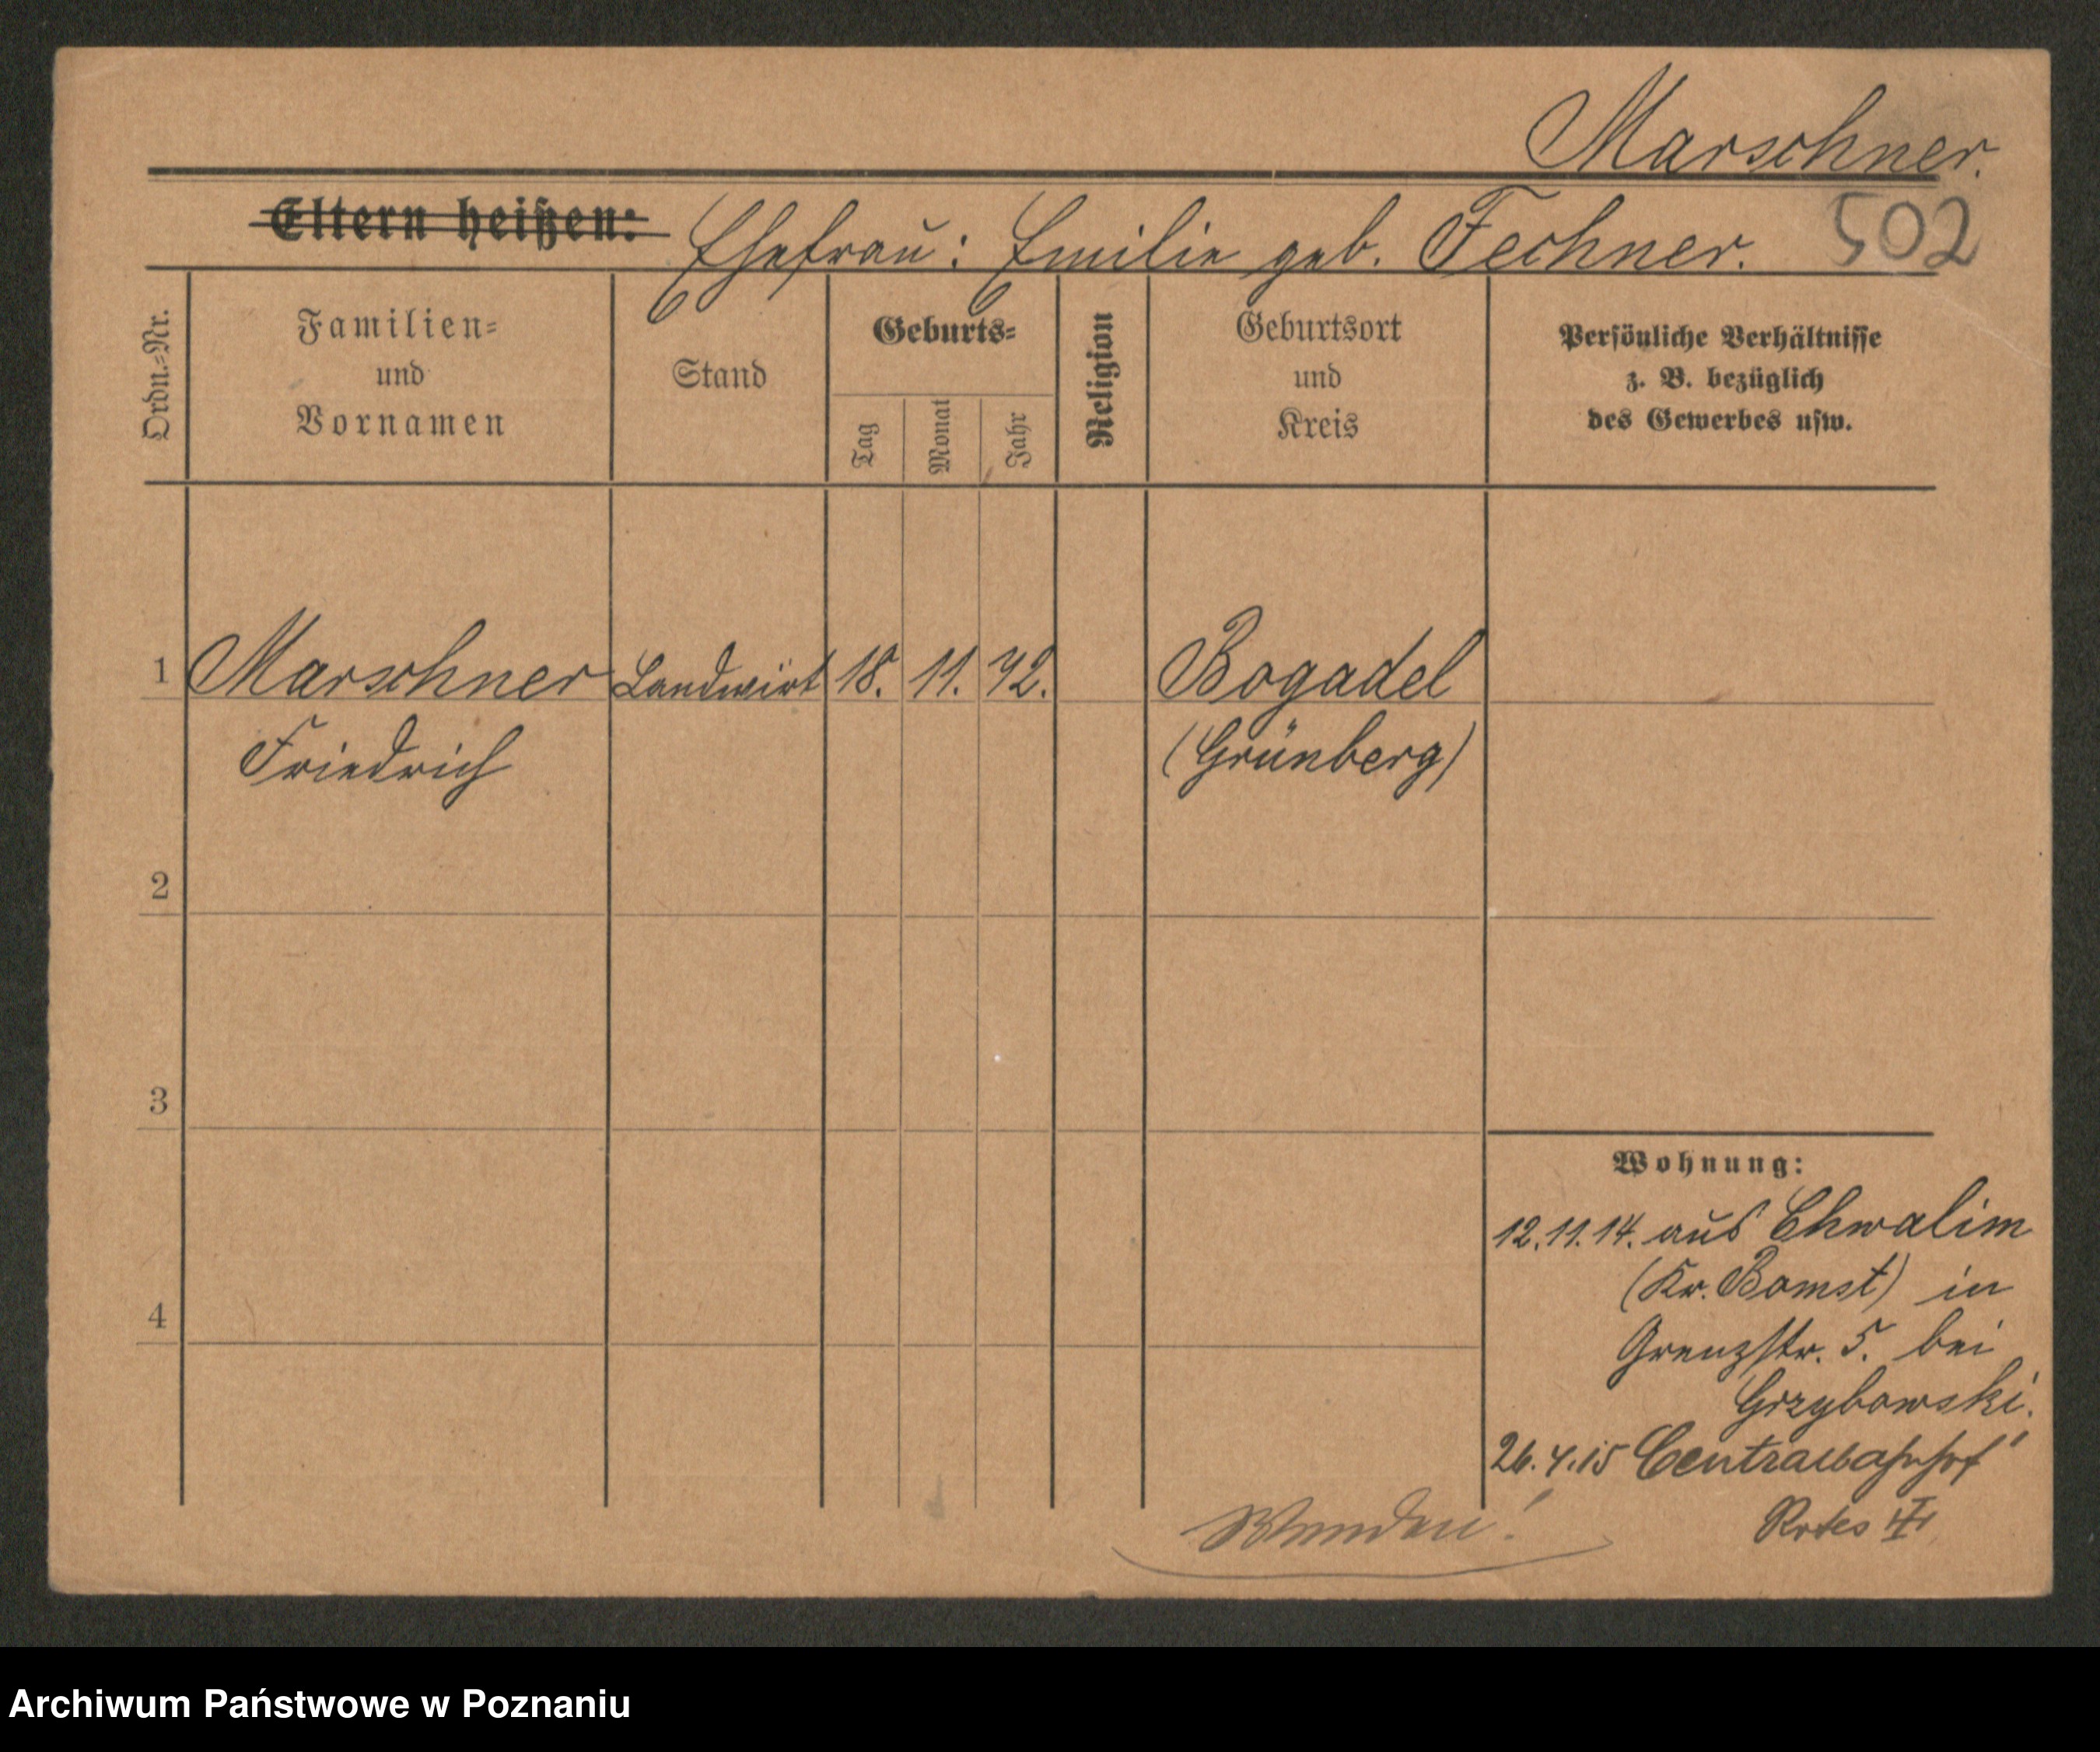 Marschner.
Eltern heißen: Ehefrau: Emilie geb. Fechner. 502
Ordn.-Nr.
Familien-
und
Vornamen
Stand
Geburts-
Tag
Monat
Jahr
Religion
Geburtsort
und
Kreis
Persönliche Verhältnisse
z. B. bezüglich
des Gewerbes usw.
1 Marschner Landwirt 18. 11. 72. Bogadel
Friedrich (Grünberg)
2
3
Wohnung:
12.11.14. aus Chwalim
(Kr. Bomst) in
4
Grenzstr. 5. bei
Grzybowski.
26.4.15 Centralbahnhof
Rotes
Wenden!
Archiwum Państwowe w Poznaniu